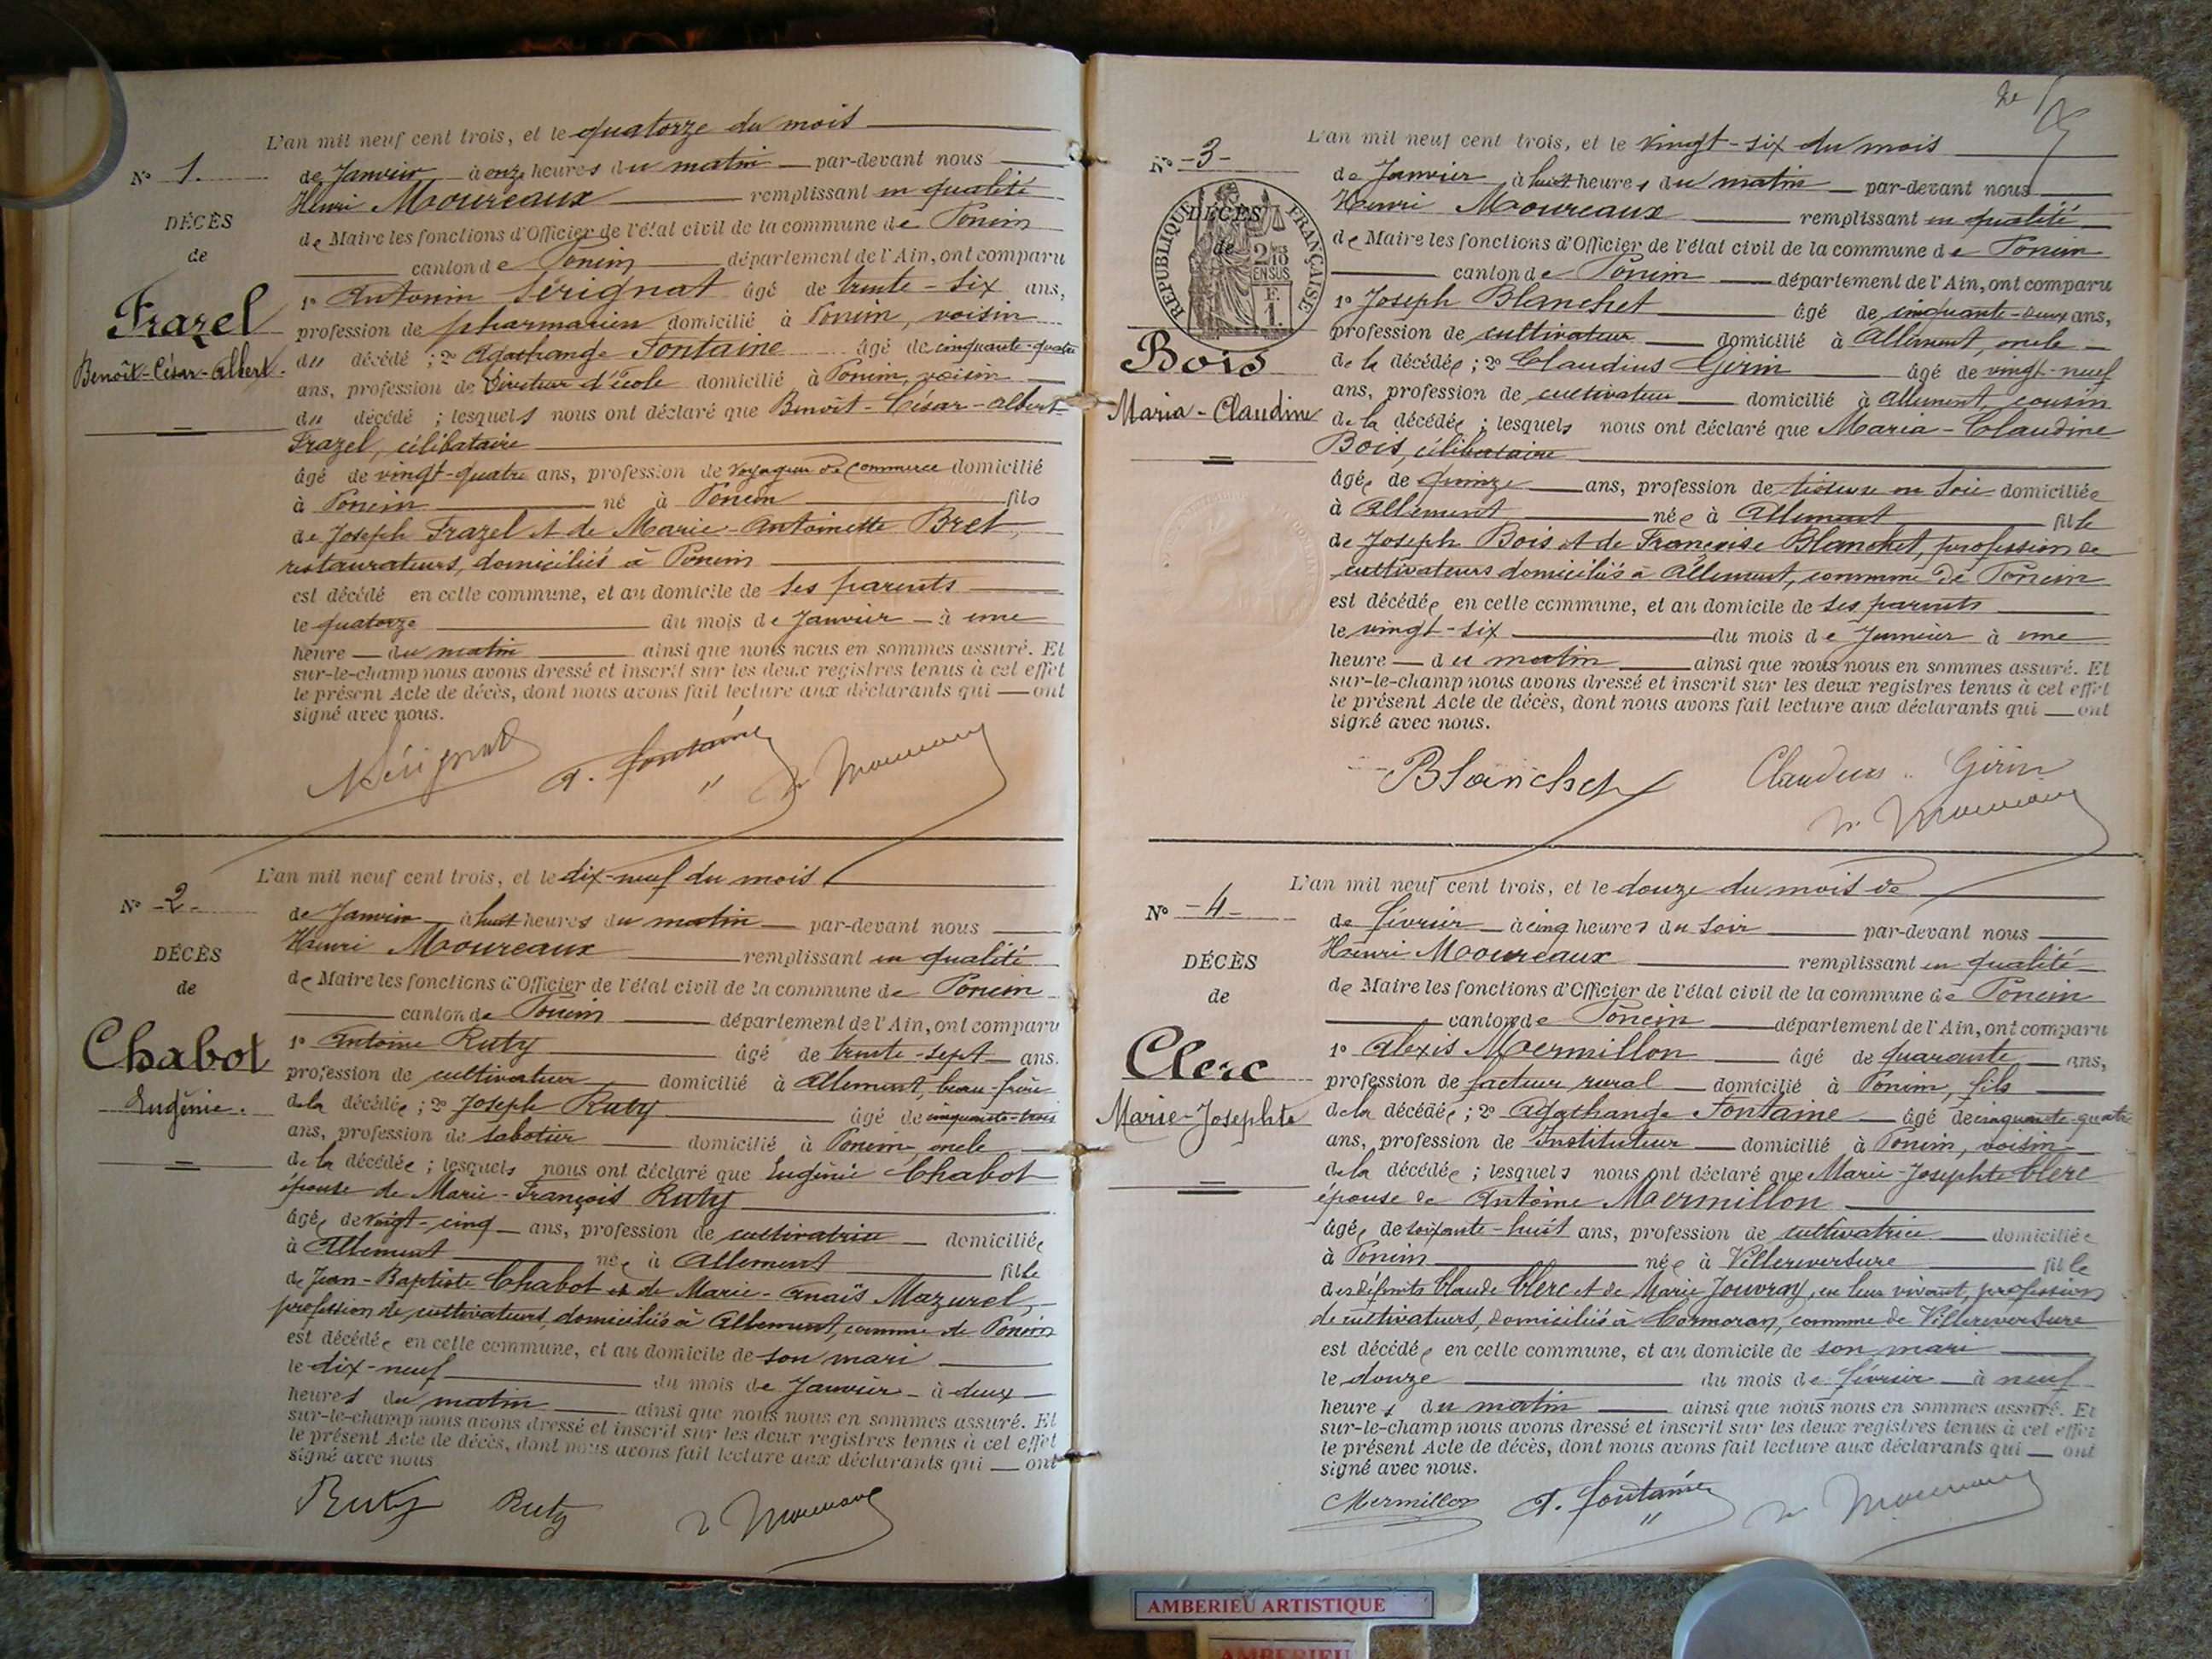 L'an mil neuf cent trois, et le quatorze du mois
N° 1.
de Janvier à onze heures du matin par-devant nous
Henri Moureaux remplissant en qualité
DÉCÈS
de Maire les fonctions d'Officier de l'état civil de la commune de Poncin
de
canton de Poncin département de l'Ain, ont comparu
1° Antonin Sérignat âgé de trente-six ans,
Frazel
profession de pharmacien domicilié à Poncin, voisin
Benoît-César-Albert.
du décédé ; 2° Agathange Fontaine âgé de cinquante-quatre
ans, profession de Directeur d'École domicilié à Poncin, voisin
du décédé ; lesquels nous ont déclaré que Benoît-César-Albert
Frazel, célibataire
âgé de vingt-quatre ans, profession de Voyageur de Commerce domicilié
à Poncin né à Poncin fils
de Joseph Frazel et de Marie-Antoinette Bret,
restaurateurs, domiciliés à Poncin
est décédé en cette commune, et au domicile de ses parents
le quatorze du mois de Janvier à une
heure du matin ainsi que nous nous en sommes assuré. Et
sur-le-champ nous avons dressé et inscrit sur les deux registres tenus à cet effet
le présent Acte de décès, dont nous avons fait lecture aux déclarants qui ont
signé avec nous.
Sérignat A. Fontaine H. Moureaux
L'an mil neuf cent trois, et le dix-neuf du mois
N° 2.
de Janvier à huit heures du matin par-devant nous
Henri Moureaux remplissant en qualité
DÉCÈS
de Maire les fonctions d'Officier de l'état civil de la commune de Poncin
de
canton de Poncin département de l'Ain, ont comparu
1° Antoine Ruty âgé de trente-sept ans.
Chabot
profession de cultivateur domicilié à Allement, beau-frère
Eugénie.
de la décédée ; 2° Joseph Ruty âgé de cinquante-trois
ans, profession de sabotier domicilié à Poncin, oncle
de la décédée ; lesquels nous ont déclaré que Eugénie Chabot
épouse de Marie-François Ruty
âgée de vingt-cinq ans, profession de cultivatrice domiciliée
à Allement née à Allement fille
de Jean-Baptiste Chabot et de Marie-Anaïs Mazurel,
profession de cultivateurs, domiciliés à Allement, commune de Poncin
est décédée en cette commune, et au domicile de son mari
le dix-neuf du mois de Janvier à deux
heures du matin ainsi que nous nous en sommes assuré. Et
sur-le-champ nous avons dressé et inscrit sur les deux registres tenus à cet effet
le présent Acte de décès, dont nous avons fait lecture aux déclarants qui ont
signé avec nous
Ruty Ruty H. Moureaux
L'an mil neuf cent trois, et le vingt-six du mois
N° 3
de Janvier à huit heures du matin par-devant nous
Henri Moureaux remplissant en qualité
RÉPUBLIQUE FRANÇAISE
DÉCÈS
de
2/10 EN SUS
F. 1.
de Maire les fonctions d'Officier de l'état civil de la commune de Poncin
canton de Poncin département de l'Ain, ont comparu
1° Joseph Blanchet âgé de cinquante-deux ans,
profession de cultivateur domicilié à Allement, oncle
Bois
de la décédée ; 2° Claudius Girin âgé de vingt-neuf
ans, profession de cultivateur domicilié à Allement, cousin
Maria-Claudine
de la décédée ; lesquels nous ont déclaré que Maria-Claudine
Bois, célibataire
âgée de quinze ans, profession de tisseuse en soie domiciliée
à Allement née à Allement fille
de Joseph Bois et de Françoise Blanchet, profession de
cultivateurs domiciliés à Allement, commune de Poncin
est décédée en cette commune, et au domicile de ses parents
le vingt-six du mois de Janvier à une
heure du matin ainsi que nous nous en sommes assuré. Et
sur-le-champ nous avons dressé et inscrit sur les deux registres tenus à cet effet
le présent Acte de décès, dont nous avons fait lecture aux déclarants qui ont
signé avec nous.
Blanchet Claudius Girin
H. Moureaux
L'an mil neuf cent trois, et le douze du mois de
N° 4
de Février à cinq heures du soir par-devant nous
Henri Moureaux remplissant en qualité
DÉCÈS
de Maire les fonctions d'Officier de l'état civil de la commune de Poncin
de
canton de Poncin département de l'Ain, ont comparu
1° Alexis Mermillon âgé de quarante ans,
Clerc
profession de facteur rural domicilié à Poncin, fils
Marie-Josephte
de la décédée ; 2° Agathange Fontaine âgé de cinquante-quatre
ans, profession de Instituteur domicilié à Poncin, voisin
de la décédée ; lesquels nous ont déclaré que Marie-Josephte Clerc
épouse de Antoine Mermillon
âgée de soixante-huit ans, profession de cultivatrice domiciliée
à Poncin née à Villereversure fille
des défunts Claude Clerc et de Marie Jouvray, en leur vivant, profession
de cultivateurs, domiciliés à Cormoran, commune de Villereversure
est décédée en cette commune, et au domicile de son mari
le douze du mois de Février à neuf
heures du matin ainsi que nous nous en sommes assuré. Et
sur-le-champ nous avons dressé et inscrit sur les deux registres tenus à cet effet
le présent Acte de décès, dont nous avons fait lecture aux déclarants qui ont
signé avec nous.
Mermillon A. Fontaine H. Moureaux
AMBERIEU ARTISTIQUE
AMBERIEU